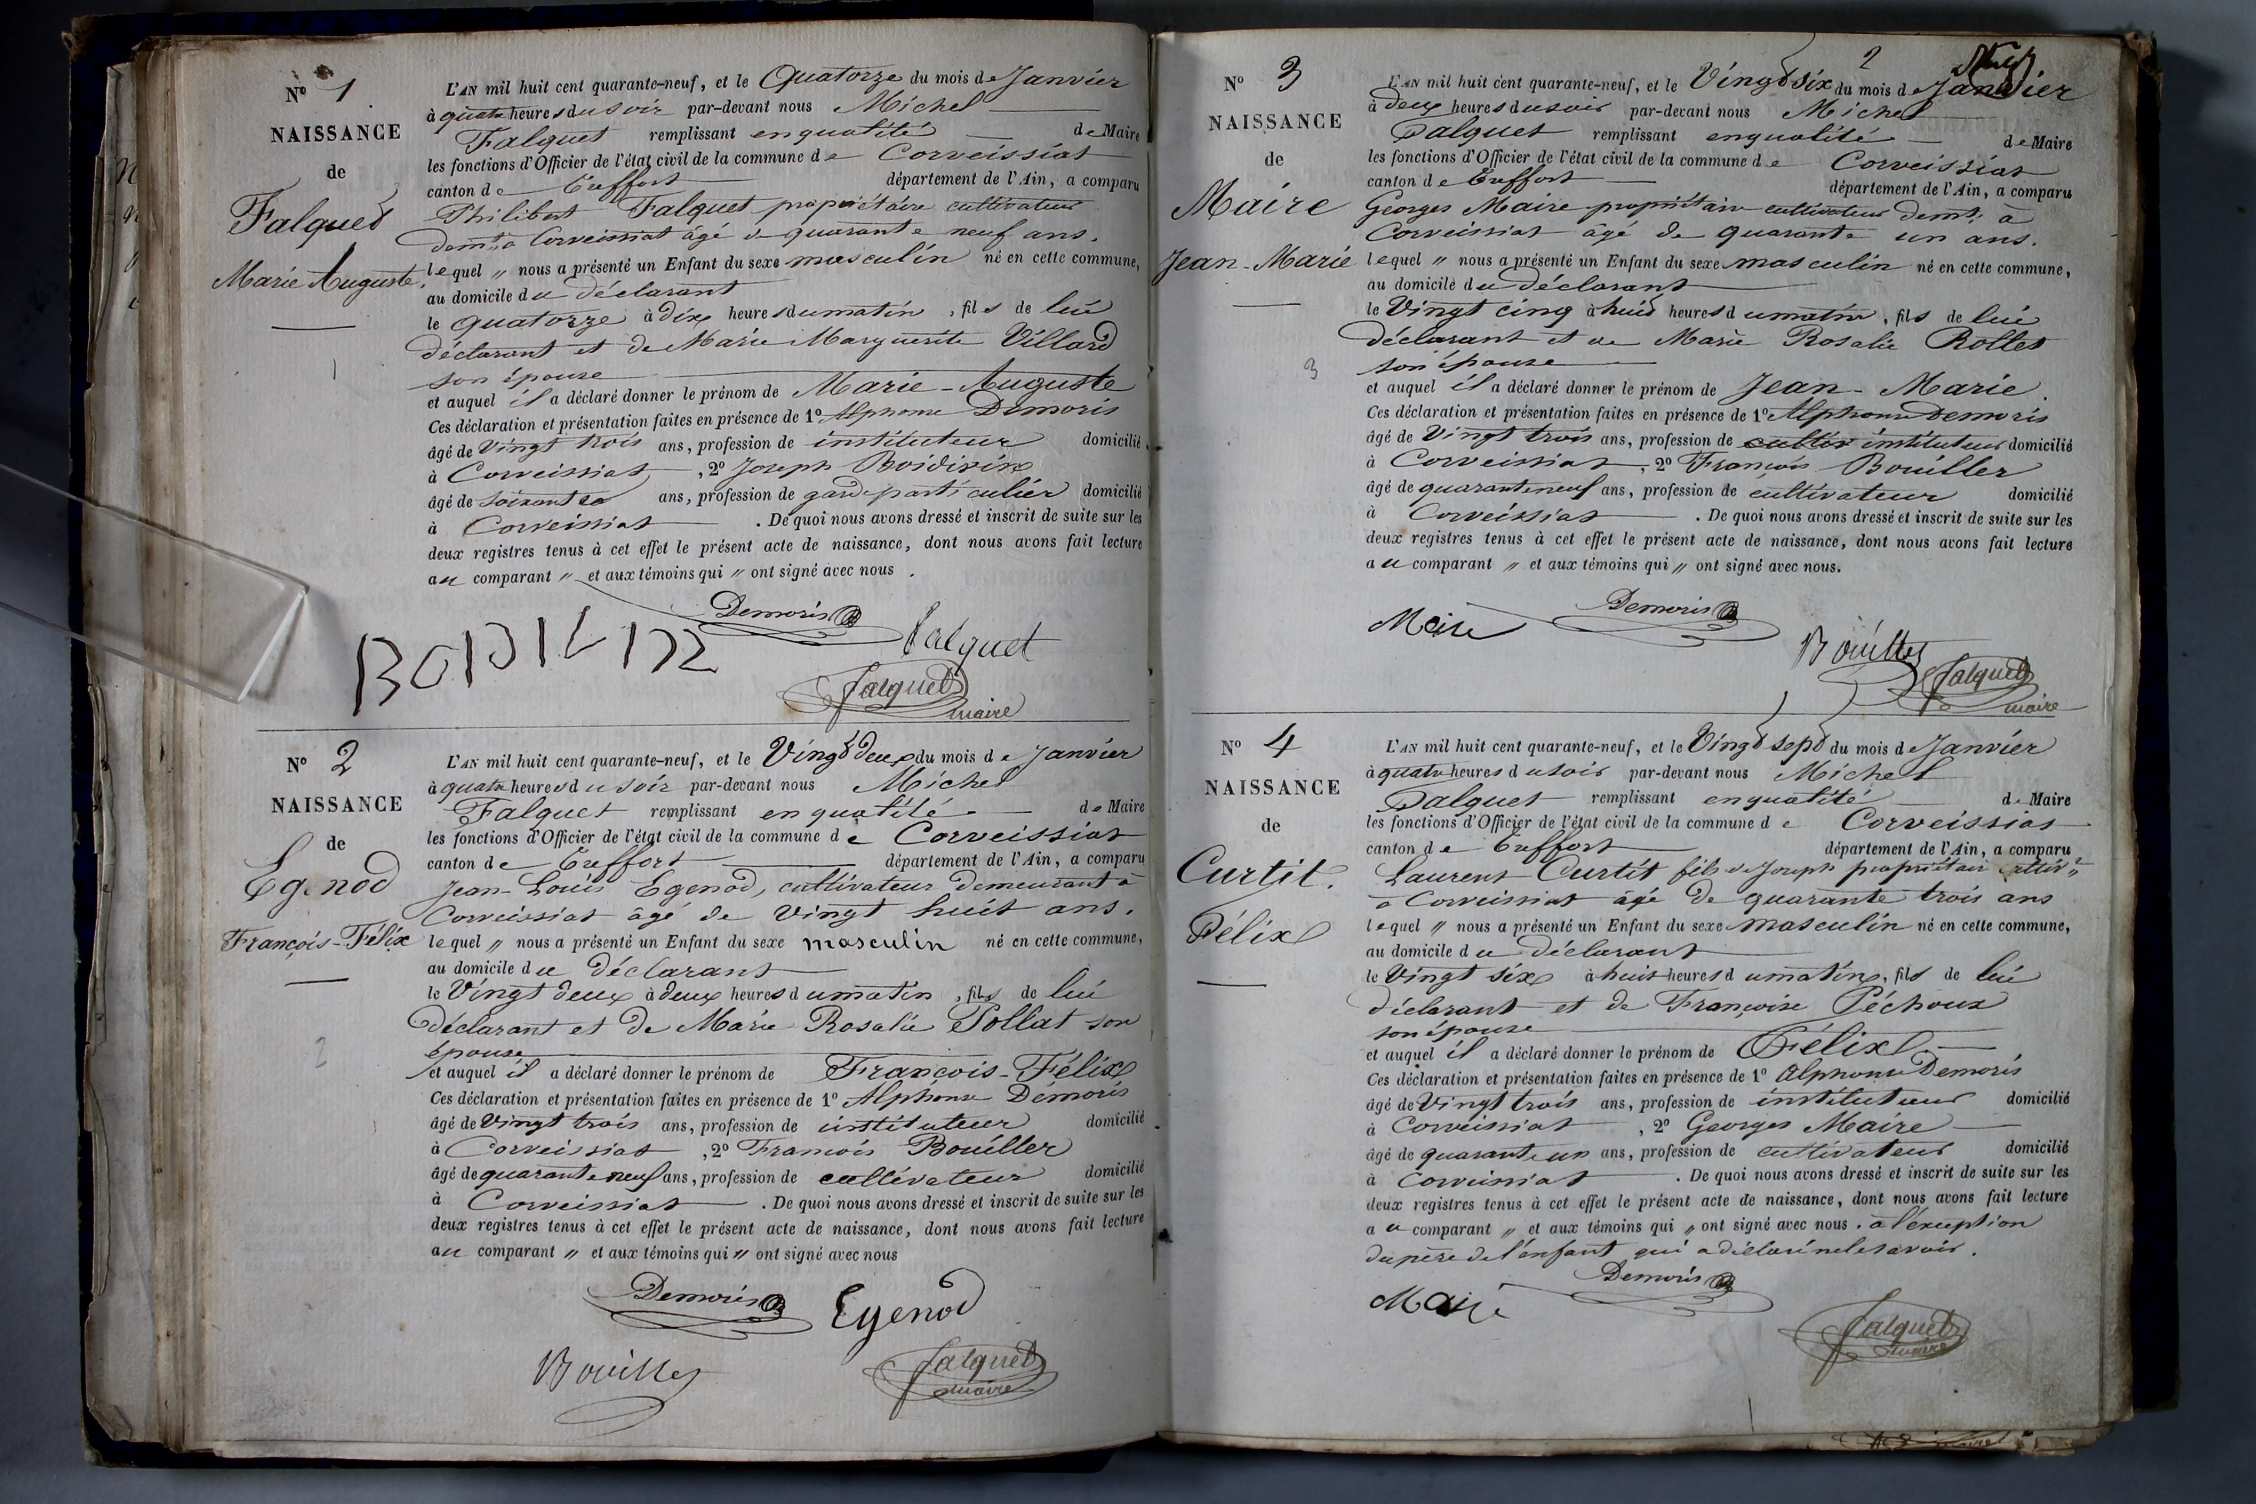 N° 1
NAISSANCE
de
Falquet
Marie Auguste
L'AN mil huit cent quarante-neuf, et le Quatorze du mois de Janvier
à quatre heures du soir par-devant nous Michel
Falquet remplissant en qualité de Maire
les fonctions d'Officier de l'état civil de la commune de Corveissiat
canton de Treffort département de l'Ain, a comparu
Philibert Falquet propriétaire cultivateur
demt à Corveissiat âgé de quarante neuf ans.
lequel " nous a présenté un Enfant du sexe masculin né en cette commune,
au domicile du déclarant
le quatorze à dix heures du matin, fils de lui
déclarant et de Marie Marguerite Villard
son épouse
et auquel il a déclaré donner le prénom de Marie-Auguste
Ces déclaration et présentation faites en présence de 1° Alphonse Demoris
âgé de Vingt trois ans, profession de instituteur domicilié
à Corveissiat, 2° Joseph Boidivin
âgé de soixante ans, profession de garde particulier domicilié
à Corveissiat. De quoi nous avons dressé et inscrit de suite sur les
deux registres tenus à cet effet le présent acte de naissance, dont nous avons fait lecture
au comparant " et aux témoins qui " ont signé avec nous.
Demoris
Falquet
Falquet
maire
1
N° 2
NAISSANCE
de
Egenod
François-Félix
L'AN mil huit cent quarante-neuf, et le Vingt deux du mois de Janvier
à quatre heures du soir par-devant nous Michel
Falquet remplissant en qualité de Maire
les fonctions d'Officier de l'état civil de la commune de Corveissiat
canton de Treffort département de l'Ain, a comparu
Jean-Louis Egenod, cultivateur demeurant à
Corveissiat âgé de vingt huit ans.
lequel " nous a présenté un Enfant du sexe masculin né en cette commune,
au domicile du déclarant
le Vingt deux à deux heures du matin, fils de lui
déclarant et de Marie Rosalie Pollat son
épouse
et auquel il a déclaré donner le prénom de François-Félix
Ces déclaration et présentation faites en présence de 1° Alphonse Demoris
âgé de Vingt trois ans, profession de instituteur domicilié
à Corveissiat, 2° François Bouiller
âgé de quarante neuf ans, profession de cultivateur domicilié
à Corveissiat. De quoi nous avons dressé et inscrit de suite sur les
deux registres tenus à cet effet le présent acte de naissance, dont nous avons fait lecture
au comparant " et aux témoins qui " ont signé avec nous
Demoris Egenod
Bouiller
Falquet
maire
2
2
N° 3
NAISSANCE
de
Maire
Jean-Marie
L'AN mil huit cent quarante-neuf, et le Vingt six du mois de Janvier
à deux heures du soir par-devant nous Michel
Falquet remplissant en qualité de Maire
les fonctions d'Officier de l'état civil de la commune de Corveissiat
canton de Treffort département de l'Ain, a comparu
Georges Maire propriétaire cultivateur demt à
Corveissiat âgé de quarante un ans.
lequel " nous a présenté un Enfant du sexe masculin né en cette commune,
au domicile du déclarant
le Vingt cinq à huit heures du matin, fils de lui
déclarant et de Marie Rosalie Rollet
son épouse
et auquel il a déclaré donner le prénom de Jean-Marie.
Ces déclaration et présentation faites en présence de 1° Alphonse Demoris
âgé de Vingt trois ans, profession de cultiv instituteur domicilié
à Corveissiat, 2° François Bouiller
âgé de quarante neuf ans, profession de cultivateur domicilié
à Corveissiat. De quoi nous avons dressé et inscrit de suite sur les
deux registres tenus à cet effet le présent acte de naissance, dont nous avons fait lecture
au comparant " et aux témoins qui " ont signé avec nous.
Maire Demoris
Bouiller
Falquet
maire
3
N° 4
NAISSANCE
de
Curtit.
Félix
L'AN mil huit cent quarante-neuf, et le Vingt sept du mois de Janvier
à quatre heures du soir par-devant nous Michel
Falquet remplissant en qualité de Maire
les fonctions d'Officier de l'état civil de la commune de Corveissiat
canton de Treffort département de l'Ain, a comparu
Laurent Curtit fils de Joseph propriétaire cultivr
à Corveissiat âgé de quarante trois ans
lequel " nous a présenté un Enfant du sexe masculin né en cette commune,
au domicile du déclarant
le Vingt six à huit heures du matin, fils de lui
déclarant et de Françoise Péchoux
son épouse
et auquel il a déclaré donner le prénom de Félix
Ces déclaration et présentation faites en présence de 1° Alphonse Demoris
âgé de Vingt trois ans, profession de instituteur domicilié
à Corveissiat, 2° Georges Maire
âgé de quarante un ans, profession de cultivateur domicilié
à Corveissiat. De quoi nous avons dressé et inscrit de suite sur les
deux registres tenus à cet effet le présent acte de naissance, dont nous avons fait lecture
au comparant " et aux témoins qui " ont signé avec nous. à l'exception
du père de l'enfant qui a déclaré ne le savoir.
Demoris
Maire
Falquet
maire